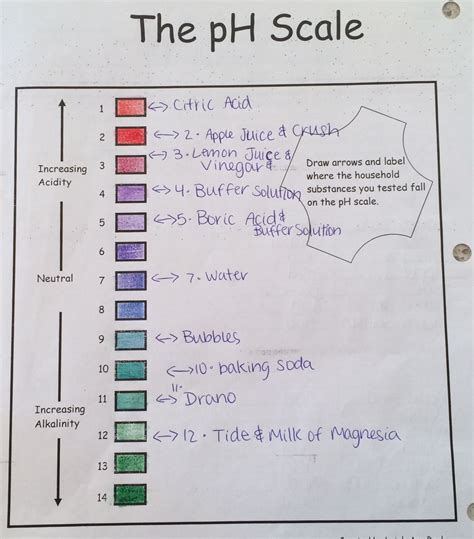 The pH Scale
1 ↔ Citric Acid
2 ↔ 2. Apple Juice & Crush
3 ↔ 3. Lemon Juice &
Vinegar &
Draw arrows and label
where the household
substances you tested fall
on the pH scale.
Increasing
Acidity
4 ↔ 4. Buffer Solution
5 ↔ 5. Boric Acid &
Buffer Solution
6
Neutral
7 ↔ 7. Water
8
9 ↔ Bubbles
10 ↔ 10. baking soda
11 ↔ 11. Drano
Increasing
Alkalinity
12 ↔ 12. Tide & Milk of Magnesia
13
14